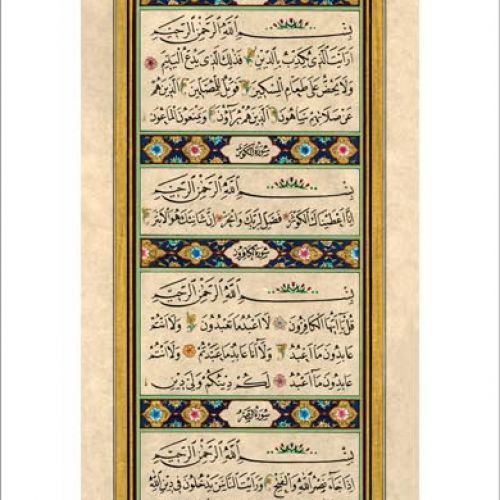 بِسْمِ اللَّهِ الرَّحْمَٰنِ الرَّحِيمِ
اَرَاَيْتَ الَّذِي يُكَذِّبُ بِالدِّينِ فَذٰلِكَ الَّذِي يَدُعُّ الْيَتِيمَ
وَلَا يَحُضُّ عَلٰى طَعَامِ الْمِسْكِينِ فَوَيْلٌ لِلْمُصَلِّينَ الَّذِينَ هُمْ
عَنْ صَلَاتِهِمْ سَاهُونَ الَّذِينَ هُمْ يُرَآؤُنَ وَيَمْنَعُونَ الْمَاعُونَ
سُورَةُ الْكَوْثَرِ
بِسْمِ اللَّهِ الرَّحْمَٰنِ الرَّحِيمِ
اِنَّا اَعْطَيْنَاكَ الْكَوْثَرَ فَصَلِّ لِرَبِّكَ وَانْحَرْ اِنَّ شَانِئَكَ هُوَ الْاَبْتَرُ
سُورَةُ الْكَافِرُونَ
بِسْمِ اللَّهِ الرَّحْمَٰنِ الرَّحِيمِ
قُلْ يَا اَيُّهَا الْكَافِرُونَ لَا اَعْبُدُ مَا تَعْبُدُونَ وَلَا اَنْتُمْ
عَابِدُونَ مَا اَعْبُدُ وَلَا اَنَا عَابِدٌ مَا عَبَدْتُمْ وَلَا اَنْتُمْ
عَابِدُونَ مَا اَعْبُدُ لَكُمْ دِينُكُمْ وَلِيَ دِينِ
سُورَةُ النَّصْرِ
بِسْمِ اللَّهِ الرَّحْمَٰنِ الرَّحِيمِ
اِذَا جَاءَ نَصْرُ اللَّهِ وَالْفَتْحُ وَرَاَيْتَ النَّاسَ يَدْخُلُونَ فِي دِينِ اللَّهِ